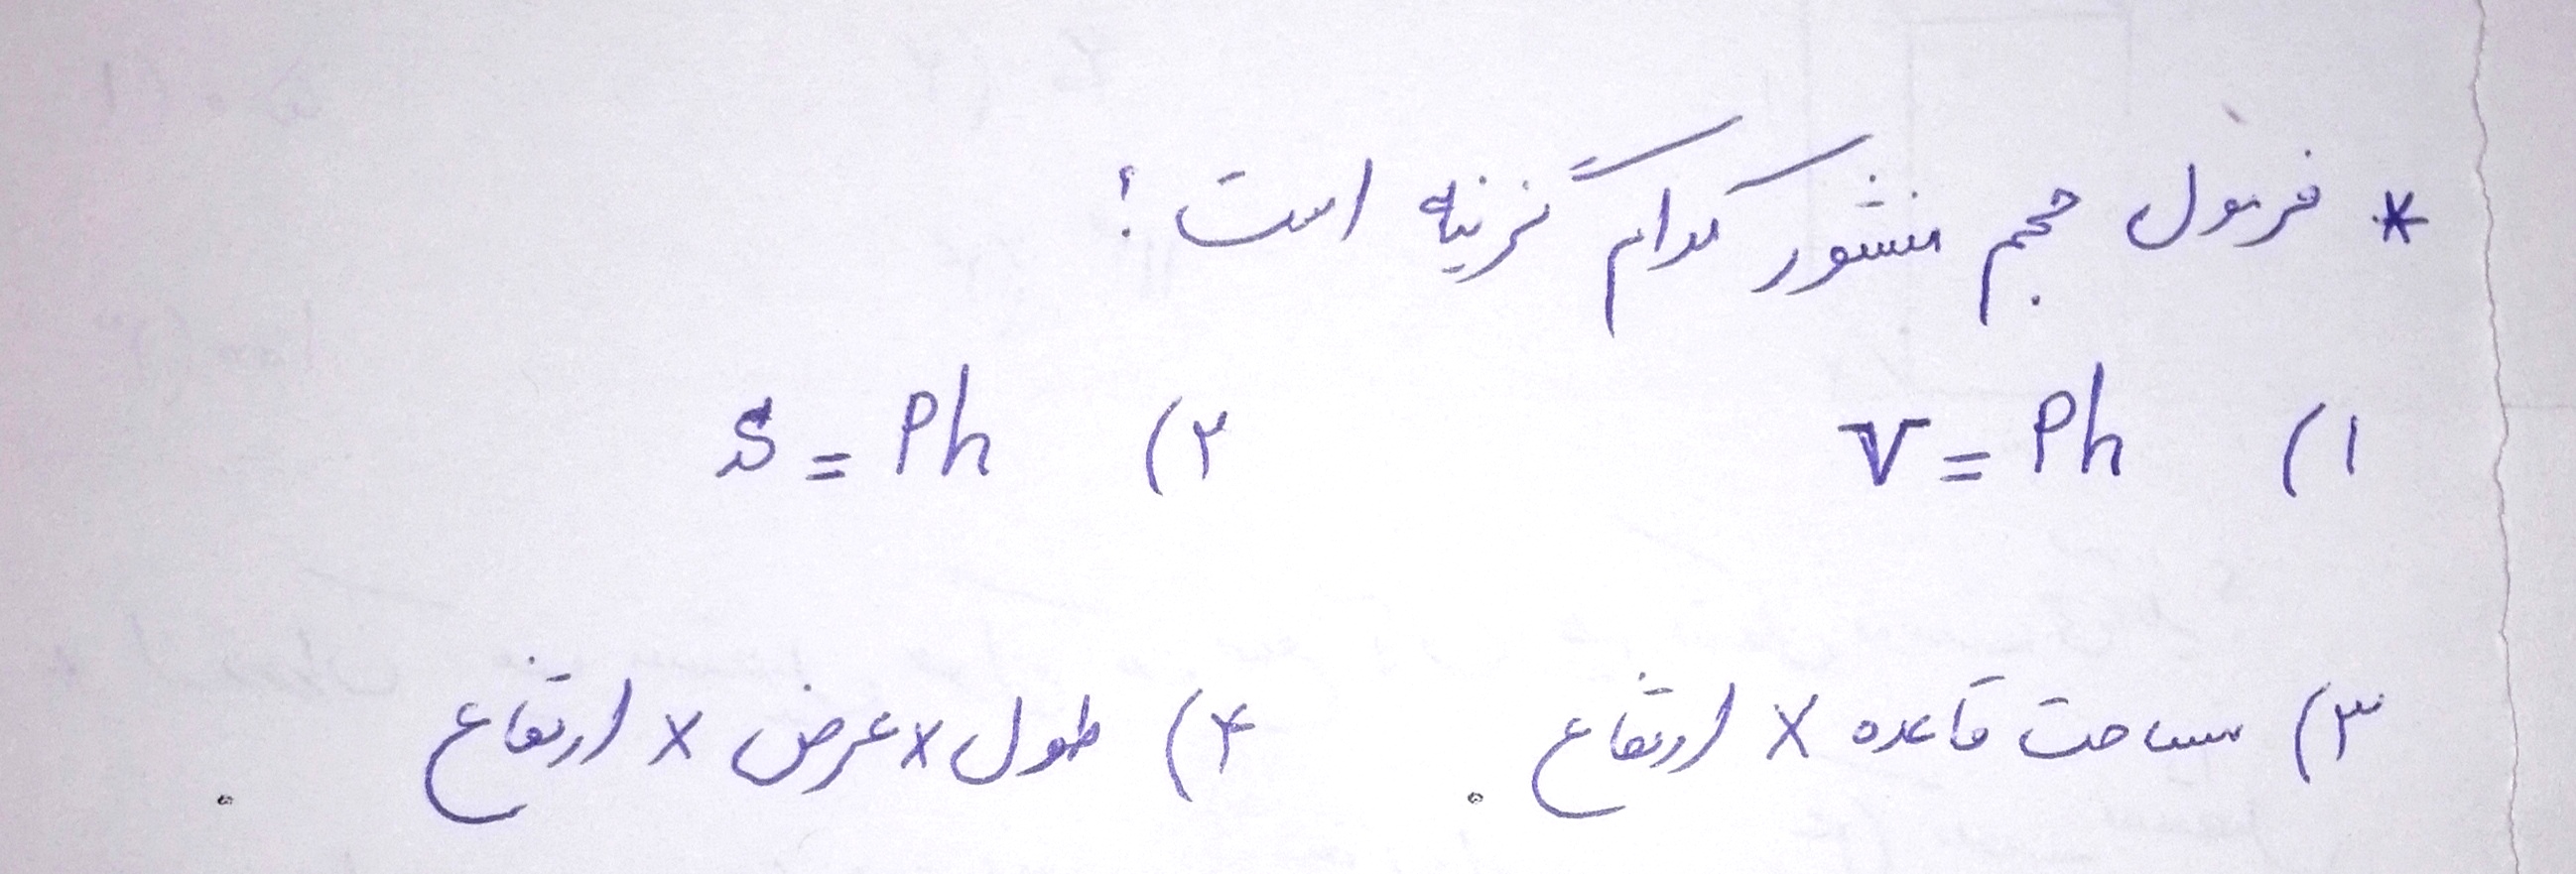 * فرمول حجم منشور کدام گزینه است؟
۱) V = Ph ۲) S = Ph
۳) مساحت قاعده × ارتفاع . ۴) طول × عرض × ارتفاع .